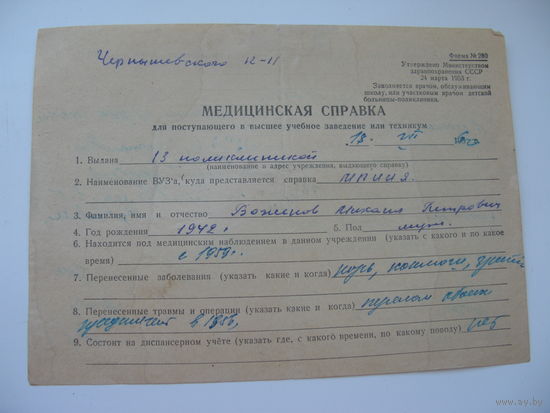 Чернышевского 12-11
Форма № 280
Утверждено Министерством
здравоохранения СССР
24 марта 1953 г.
Заполняется врачом, обслуживающим
школу, или участковым врачом детской
больницы-поликлиники.
МЕДИЦИНСКАЯ СПРАВКА
для поступающего в высшее учебное заведение или техникум
13 VII
1. Выдана 13 поликлиникой
(наименование и адрес учреждения, выдающего справку)
2. Наименование ВУЗ'а, куда представляется справка
3. Фамилия, имя и отчество Михаил Петрович
4. Год рождения 1942 г. 5. Пол муж.
6. Находится под медицинским наблюдением в данном учреждении (указать с какого и по какое
время) с 1959г.
7. Перенесенные заболевания (указать какие и когда) корь, коклюш, грипп
8. Перенесенные травмы и операции (указать какие и когда) перелом
в 1956,
9. Состоит на диспансерном учёте (указать где, с какого времени, по какому поводу) нет
www.ay.by